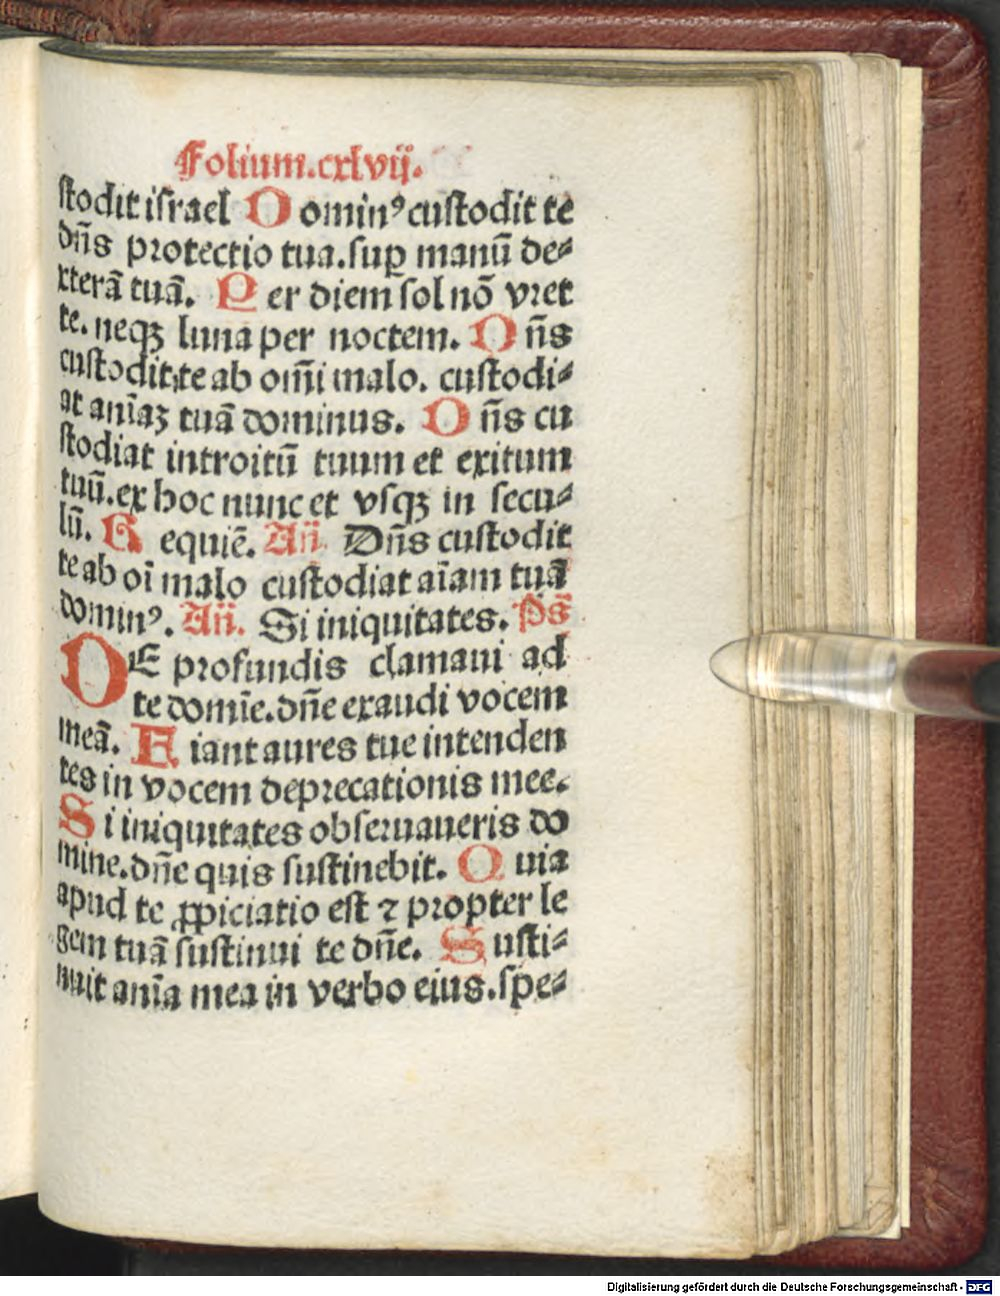 Folium.cxlvij.
ſtodit iſrael Dominꝰ cuſtodit te
dn̄s protectio tua.ſuꝑ manū de⸗
xterā tuā. Per diem ſol nō vret
te. neqꝫ luna per noctem. Dn̄s
cuſtodit te ab om̄i malo. cuſtodi⸗
at anīaꝫ tuā dominus. Dn̄s cu
ſtodiat introitū tuum et exitum
tuū.ex hoc nunc et vſqꝫ in ſecu⸗
lū. Requiē. An̄. Dn̄s cuſtodit
te ab oī malo cuſtodiat aīam tuā
dominꝰ. An̄. Si iniquitates. Ps̄
DE profundis clamaui ad
te domīe.dn̄e exaudi vocem
meā. Fiant aures tue intenden
tes in vocem deprecationis mee.
Si iniquitates obſeruaueris do
mine.dn̄e quis ſuſtinebit. Quia
apud te ꝓpiciatio eſt ⁊ propter le
gem tuā ſuſtinui te dn̄e. Suſti⸗
nuit anīa mea in verbo eius.ſpe⸗
Digitalisierung gefördert durch die Deutsche Forschungsgemeinschaft - DFG